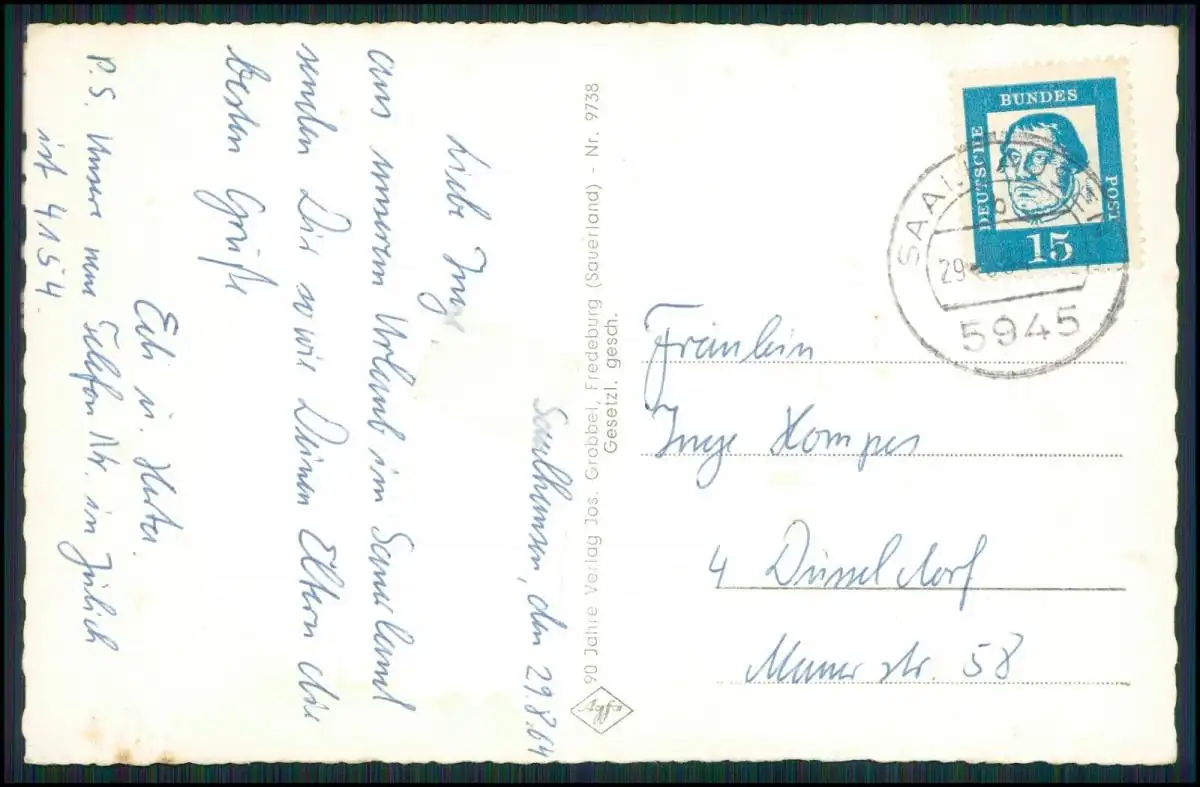 Saalhausen, den 29.8.64
Liebe Inge,
aus unserem Urlaub im Sauerland
senden Dir sowie Deinen Eltern die
besten Grüße
Edi u. Herta.
P.S. Unsere neue Telefon Nr. in Jülich
ist 4154
90 Jahre Verlag Jos. Grobbel, Fredeburg (Sauerland) - Nr. 9738
Gesetzl. gesch.
Agfa
DEUTSCHE BUNDES POST
15
5945
Fräulein
Inge Kompes
4 Düsseldorf
Mauerstr. 58